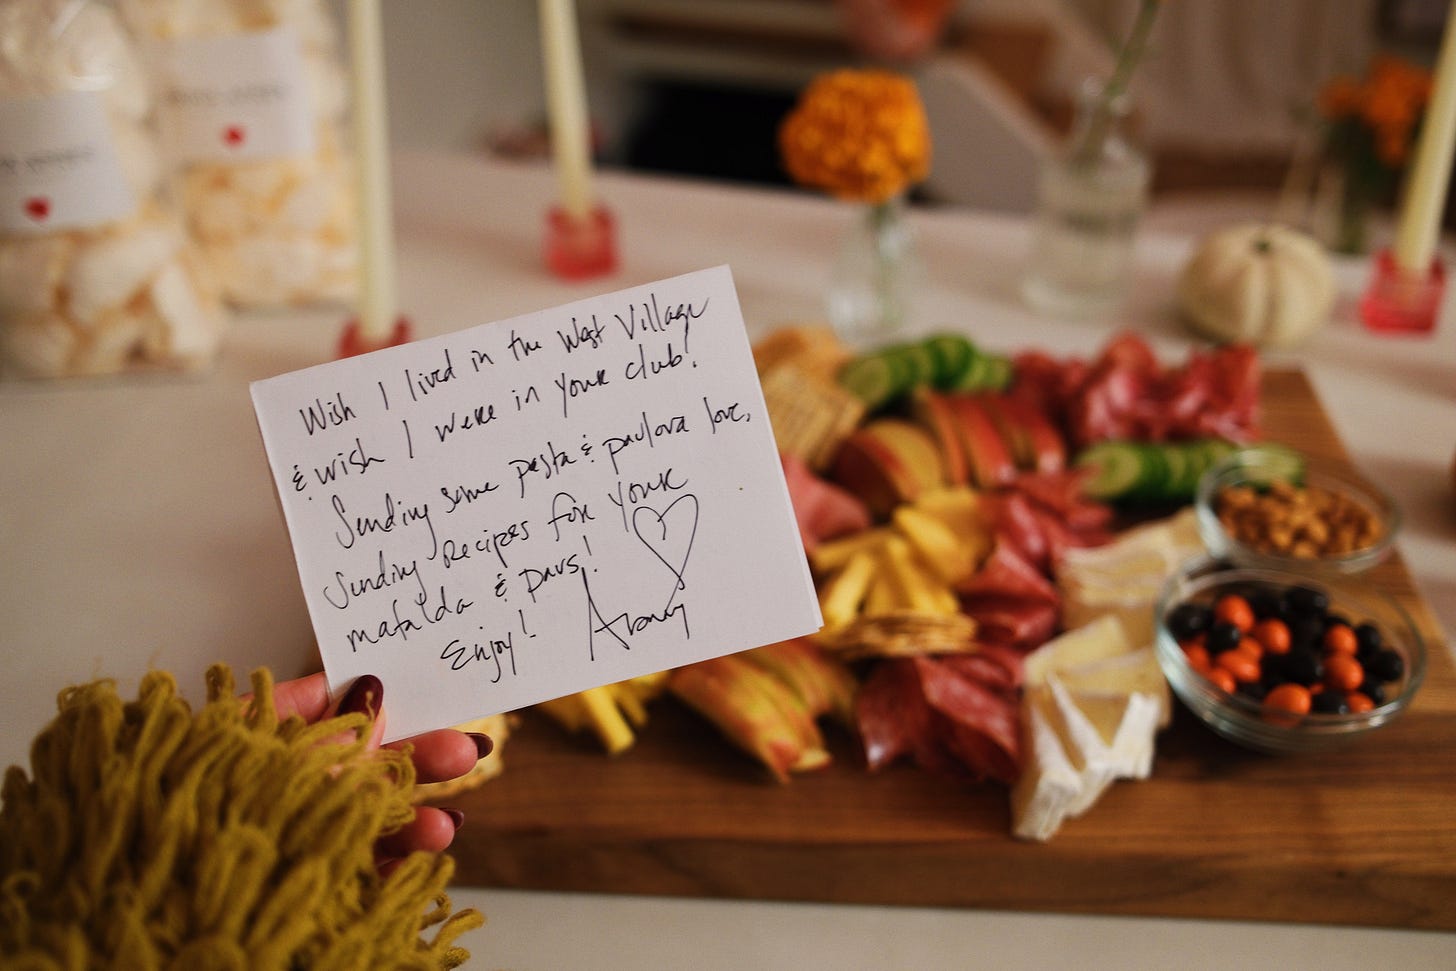 Wish I lived in the West Village
& wish I were in your club!
Sending some pasta & pavlova love,
Sending recipes for your
mafalda & pavs!
Enjoy!